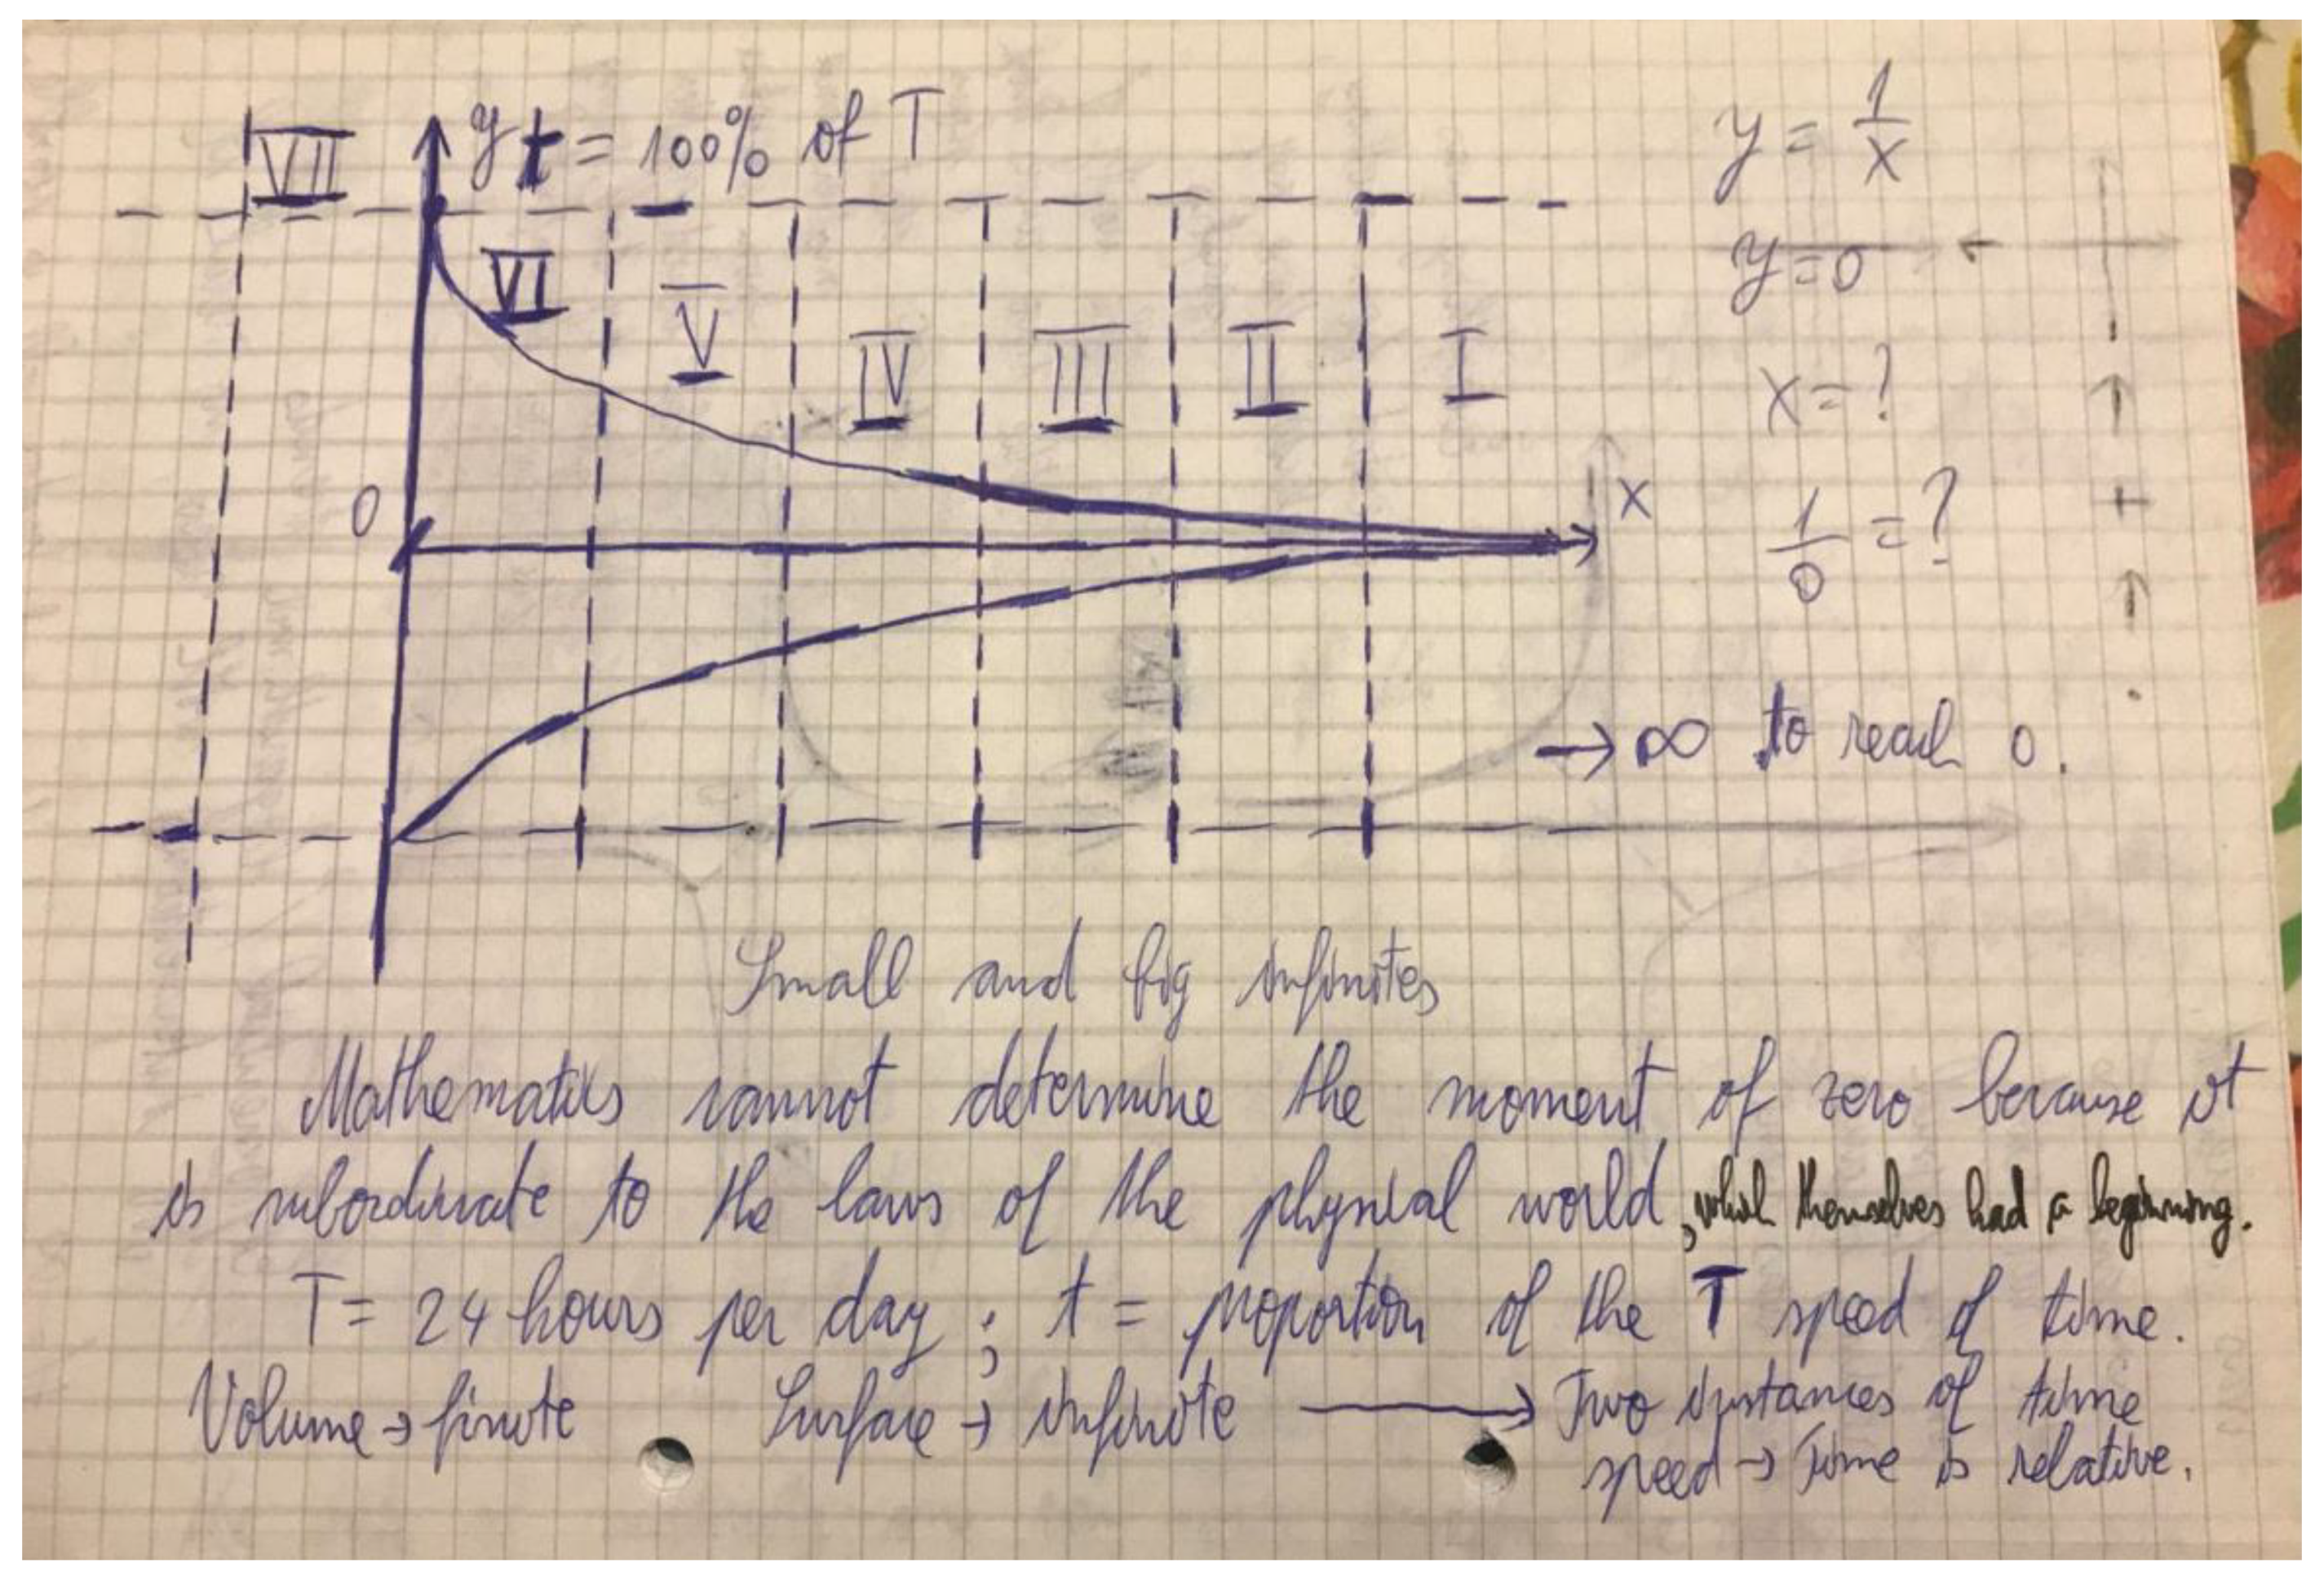 VII y t = 100% of T
y = 1/x
y=0
VI V IV III II I
x=?
0
x
1/0 = ?
→ ∞ to reach 0.
Small and big infinites
Mathematics cannot determine the moment of zero because it
is subordinate to the laws of the physical world, which themselves had a beginning.
T= 24 hours per day ; t = proportion of the T speed of time.
Volume → finite Surface → infinite → Two instances of time
speed → Time is relative.